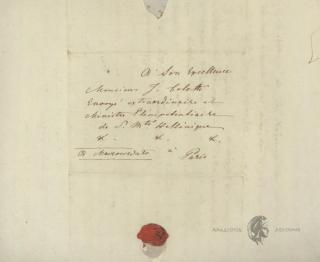 A Son Excellence
Monsieur J. Coletti
Envoyé extraordinaire et
Ministre Plenipotentiaire
de S. Mté Hellénique
&. &. &.
A. Mavrocordato à
Paris
ΑΚΑΔΗΜΙΑ ΑΘΗΝΩΝ